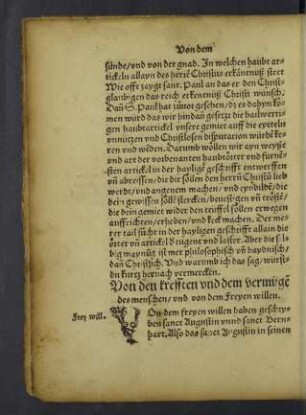 Von dem
sünde/vnd von der gnad. In welchen haubt ar-
tickeln allayn des herrē Christus erkantnuß steet
Wie offt zaygt sant. Paul an das er den Christ-
glaubigen das reich erkentnuß Christi wünsch.
Dañ S. Paul hat zůuor gesehen/dz es dahyn kö-
men würd das wir hindan gesetzt die hailwerti-
gen haubtartickel vnsere gemiet auff die eytteln
vnnützen vnd Christlosen disputation würdē ke-
ren vnd wēden. Darumb wöllen wir ayn weyse
vnd art der vorbenanten haubtörtter vnd fürnē-
sten artickeln in der hayligē geschrifft entwerffen
vñ abreissen, die dir söllen den herren Christū lieb
wetdt/vnd angenem machen/ vnd eynbildē/ die
dein gewissen soll sterckē/ beuestigen vñ tröstē/
die dein gemiet wider den teüffel söllen erwegen
auffrichten/erheben/vnd keck machen. Der me-
rer tail sücht in der hayligen geschrifft allain die
örter vñ artickel d tugent vnd laster. Aber die selbig
maynūg ist mer philosophisch vñ haydnisch/
dañ Christlich. Vnd warumb ich das sag/würst-
du kurtz hernach vermercken.
Von den krefften vnd dem vermügē
des menschen/ vnd von dem Freyen willen.
Frey will.
VOn dem freyen willen haben geschry-
ben sanct Augustin vnnd sanct Bern-
hart. Also das sanct Augustin in seinen